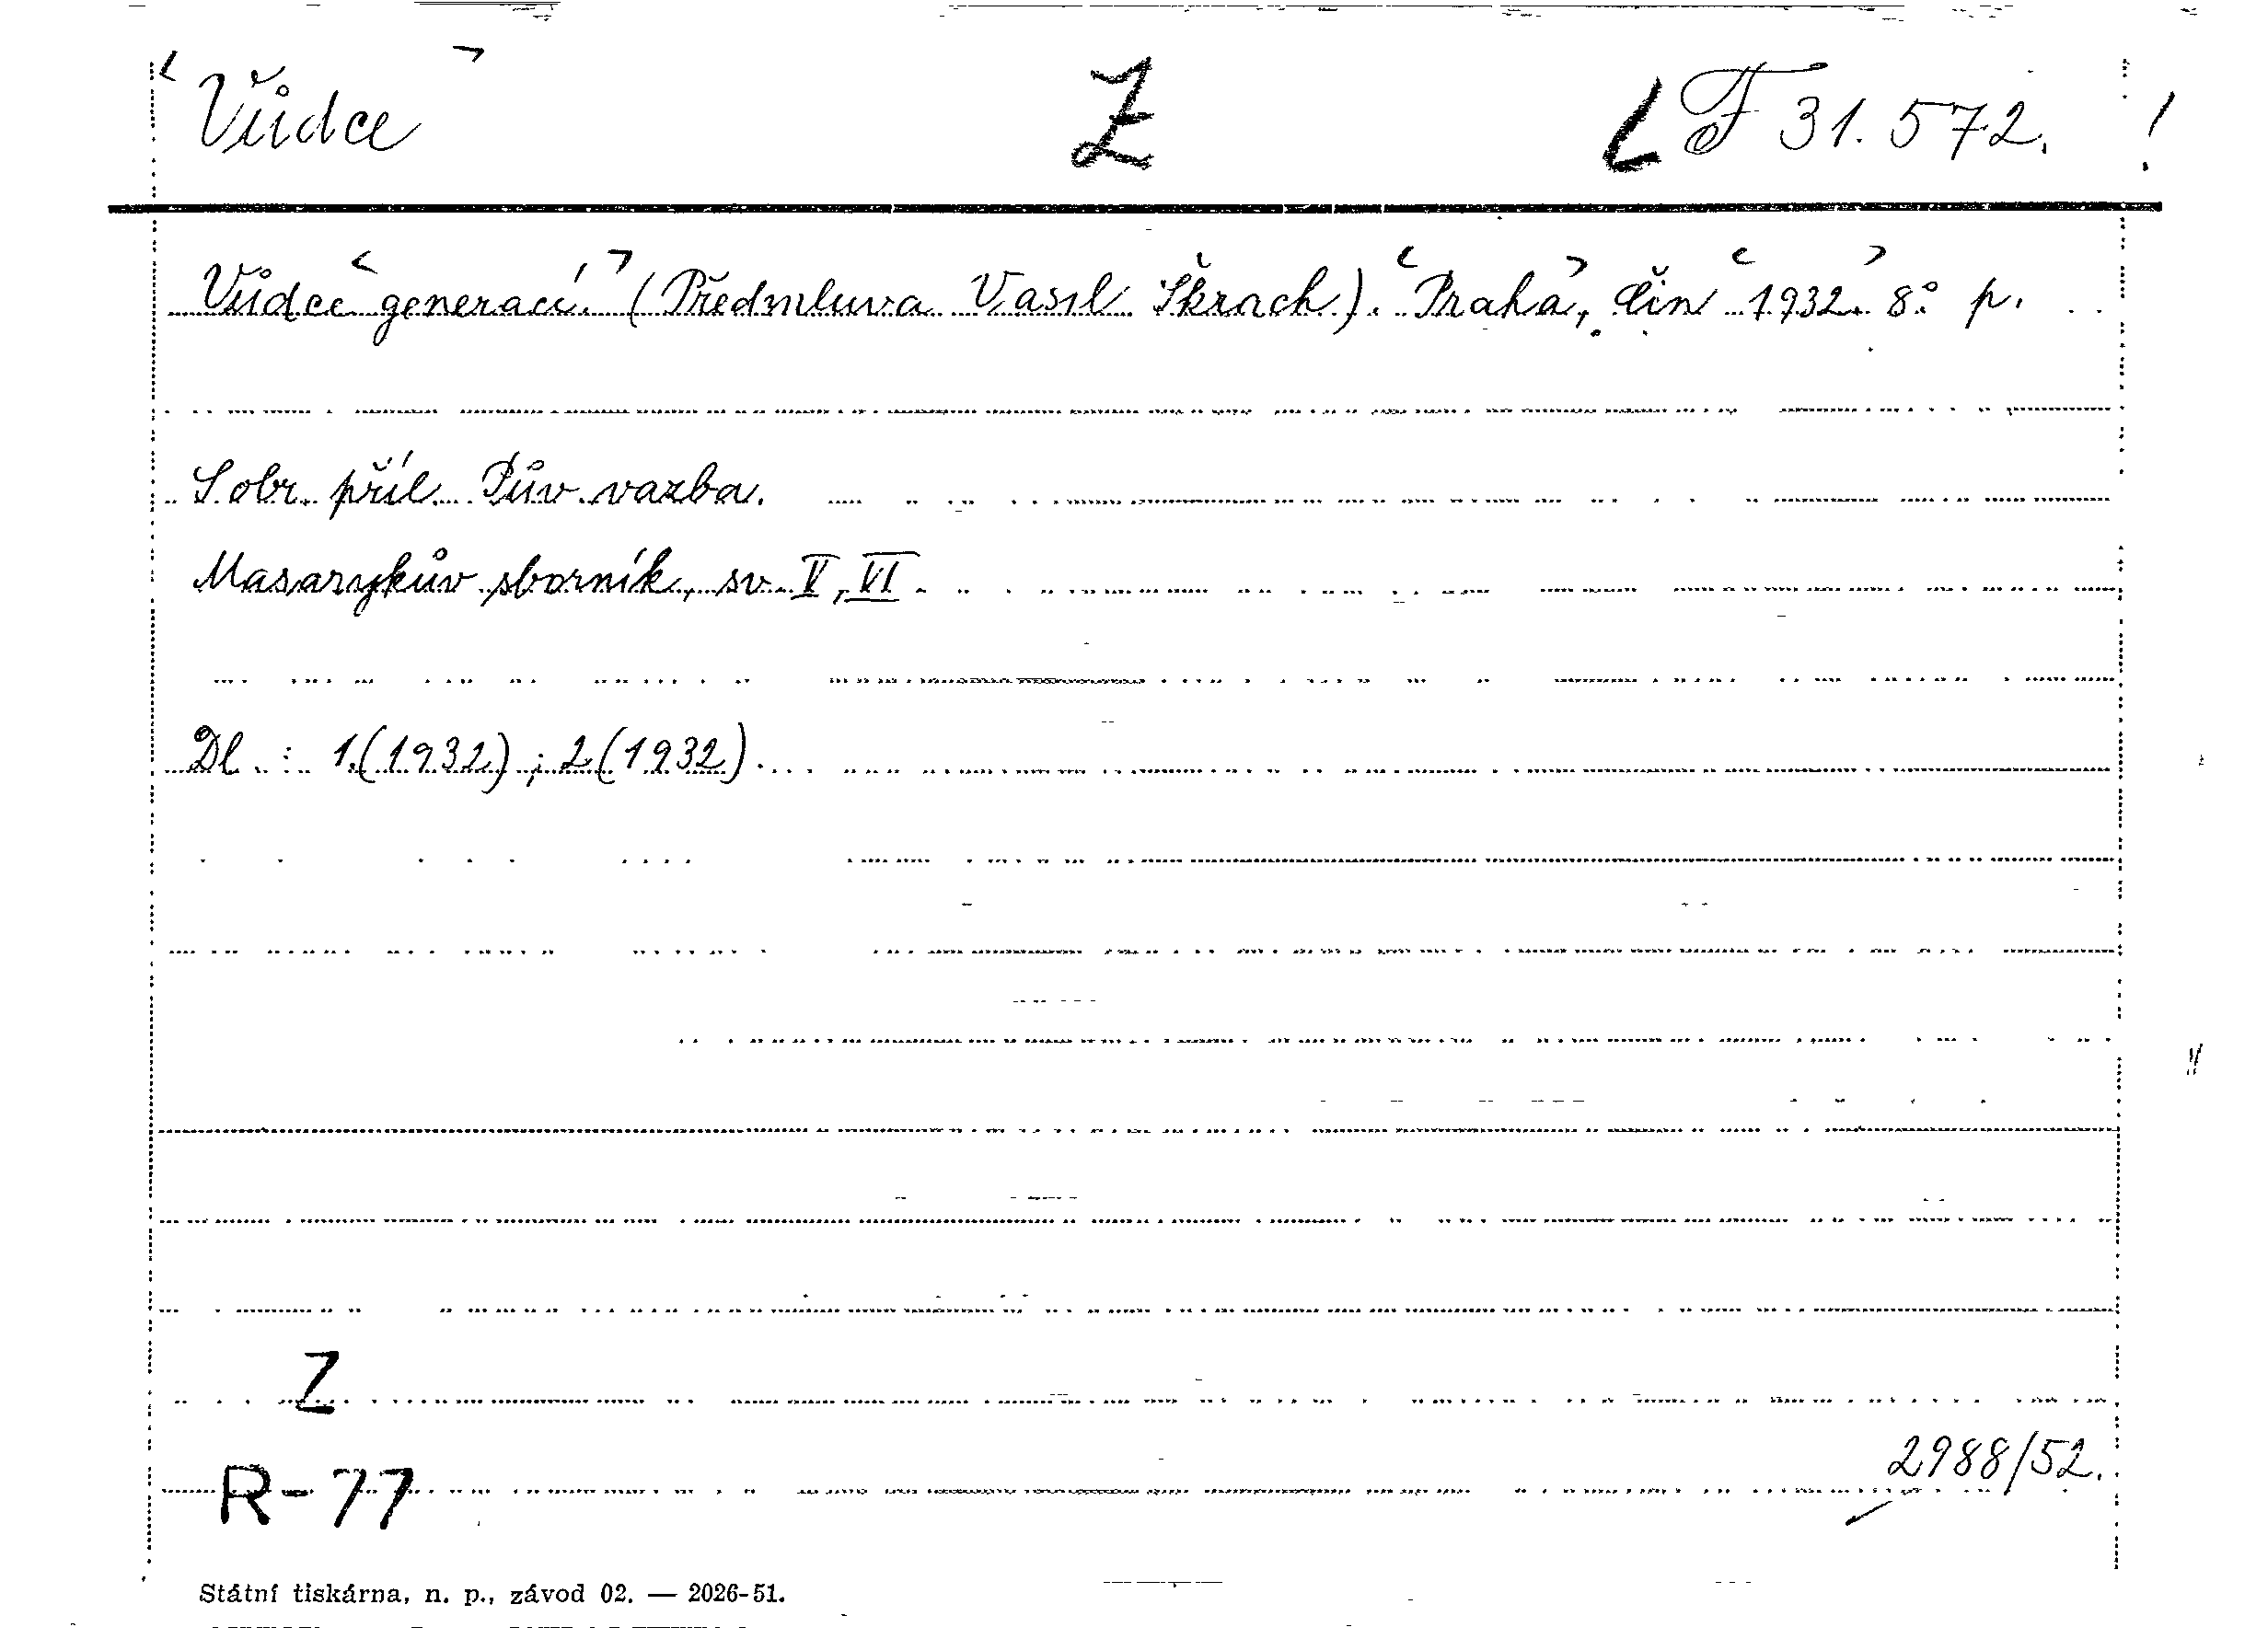 Vůdce Z F 31.572.
Vůdce generací. (Předmluva Vasil Škrach). Praha, Čin 1932. 8° p.
S obr. příl. Pův. vazba.
Masarykův sborník, sv. V, VI.
Dl.: 1.(1932); 2(1932).
Z
2988/52.
R-77
Státní tiskárna, n. p., závod 02. — 2026-51.